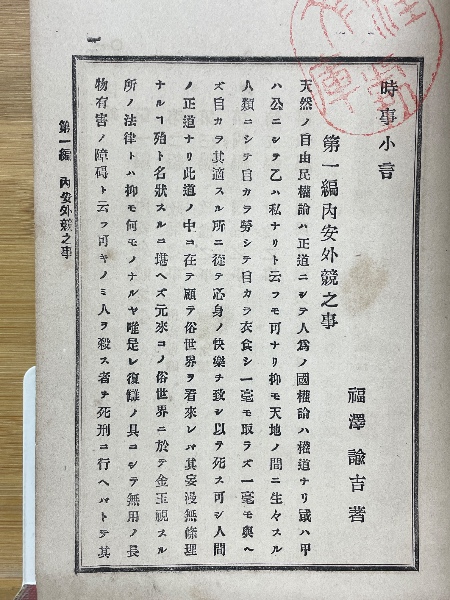 時事小言
福澤諭吉著
第一編内安外競之事
天然ノ自由民權論ハ正道ニシテ人爲ノ國權論ハ權道ナリ或ハ甲
ハ公ニシテ乙ハ私ナリト云フモ可ナリ抑モ天地ノ間ニ生々スル
人類ニシテ自カラ勞シテ自カラ衣食シ一毫モ取ラズ一毫モ與ヘ
ズ自カラ其適スル所ニ從テ心身ノ快樂ヲ致シ以テ死ス可シ人間
ノ正道ナリ此道ノ中ニ在テ顧テ俗世界ヲ看來レバ其妄漫無條理
ナルヿ殆ト名狀スルニ堪ヘズ元來コノ俗世界ニ於テ金玉視スル
所ノ法律トハ抑モ何モノナルヤ唯是レ復讎ノ具ニシテ無用ノ長
物有害ノ障碍ト云フ可キノミ人ヲ殺ス者ヲ死刑ニ行ヘバトテ其
第一編 内安外競之事
一